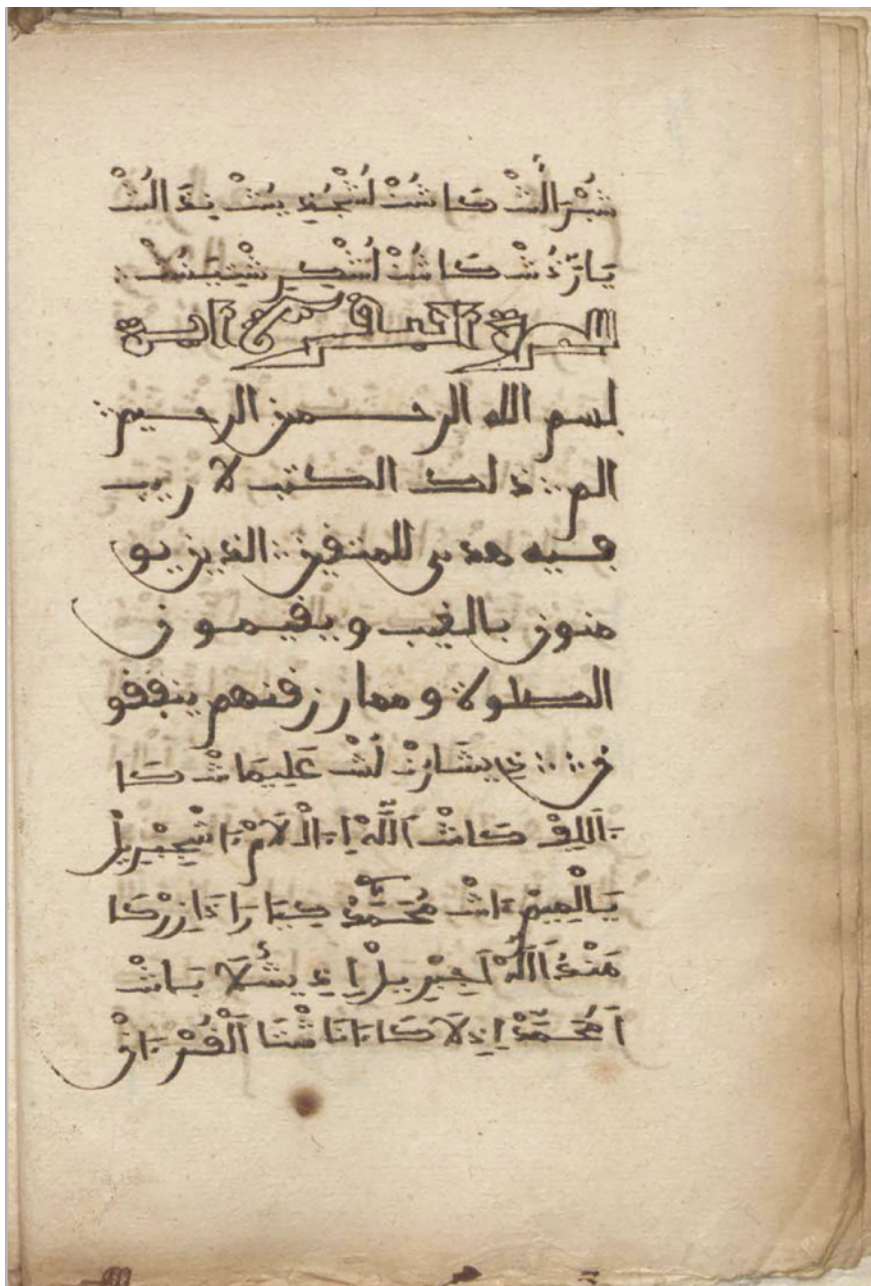 شُبْرَالُشْ كَا شُنْ لُشْجُذِيُشْ نِذَالُشْ
يَارَّذُشْ كَا شُنْ لُشْكِرِشْتِيَنُشْ
بسم الله الرحمن الرحيم
الم ذلك الكتب لا ريب
فيه هدى للمتقين الذين يو
منون بالغيب ويقيمون
الصلوة ومما رزقنهم ينفقو
ن ذِيشَارُنْ لُشْ عَلِيمَاشْ كَا
اَلِفْ كَاشْ اَللَّهْ اِاَلْ لَامْ اَشْجِبْرِيلْ
يَالْمِيمْ اَشْ مُحَمَّدْ كِيَارَا ذَازِرْكَا
مَنْذُ اَللَّهْ اَجِبْرِيلْ اِذِيشُلَا بَاشْ
اَمُحَمَّدْ اِذِلَا كَا اَنَاشْتَا اَلْقُرْاَنْ